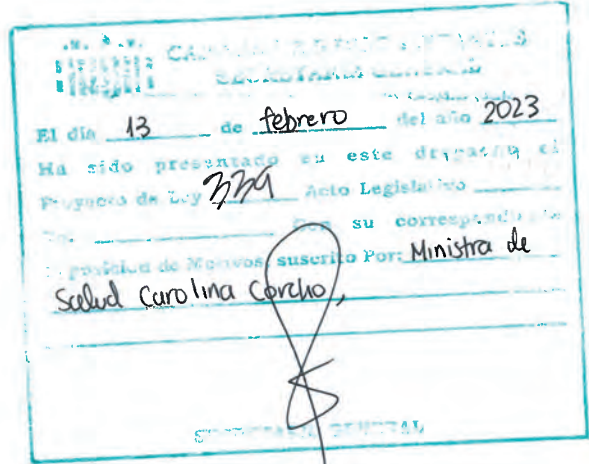 CAMARA DE REPRESENTANTES
SECRETARIA GENERAL
El día 13 de febrero del año 2023
Ha sido presentado en este despacho el
Proyecto de Ley 339 Acto Legislativo
No. Con su correspondiente
Exposición de Motivos, suscrito Por: Ministra de
Salud Carolina Corcho,
SECRETARIO GENERAL